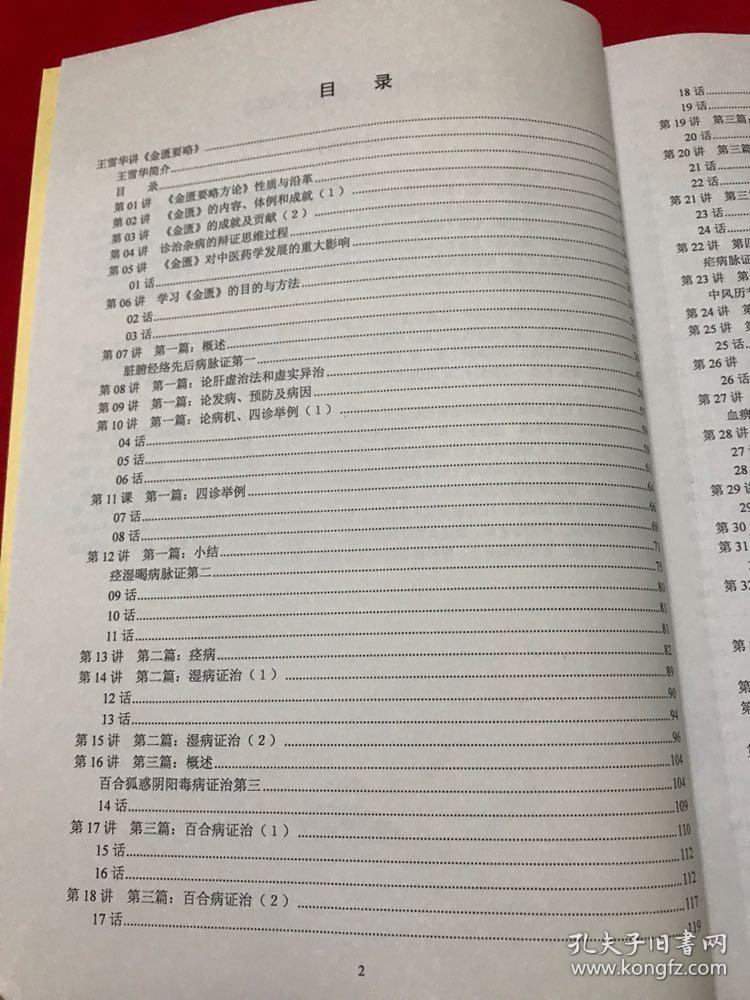 目 录
王雪华讲《金匮要略》
王雪华简介
目 录
第 01 讲 《金匮要略方论》性质与沿革
第 02 讲 《金匮》的内容、体例和成就(1)
第 03 讲 《金匮》的成就及贡献(2)
第 04 讲 诊治杂病的辩证思维过程
第 05 讲 《金匮》对中医药学发展的重大影响
01 话
第 06 讲 学习《金匮》的目的与方法
02 话
03 话
第 07 讲 第一篇：概述
脏腑经络先后病脉证第一
第 08 讲 第一篇：论肝虚治法和虚实异治
第 09 讲 第一篇：论发病、预防及病因
第 10 讲 第一篇：论病机、四诊举例(1) 57
04 话 59
05 话 59
06 话 61
第 11 课 第一篇：四诊举例 64
07 话 66
08 话 69
第 12 讲 第一篇：小结 71
痉湿暍病脉证第二 75
09 话 80
10 话 81
11 话 81
第 13 讲 第二篇：痉病 82
第 14 讲 第二篇：湿病证治(1) 89
12 话 90
13 话 94
第 15 讲 第二篇：湿病证治(2) 96
第 16 讲 第三篇：概述 104
百合狐惑阴阳毒病证治第三 104
14 话 109
第 17 讲 第三篇：百合病证治(1) 110
15 话 112
16 话 112
第 18 讲 第三篇：百合病证治(2) 117
17 话 119
2
18 话
19 话
第 19 讲 第三篇
20 话
第 20 讲 第三篇
21 话
22 话
第 21 讲 第三
23 话
24 话
第 22 讲 第四
疟病脉证
第 23 讲 第
中风历节
第 24 讲 第
第 25 讲 第
25 话
第 26 讲
26 话
第 27 讲
血痹
第 28 讲
27 话
28
第 29 讲
29
第 30
第 31
第 32
第
第
第
孔夫子旧书网
www.kongfz.com